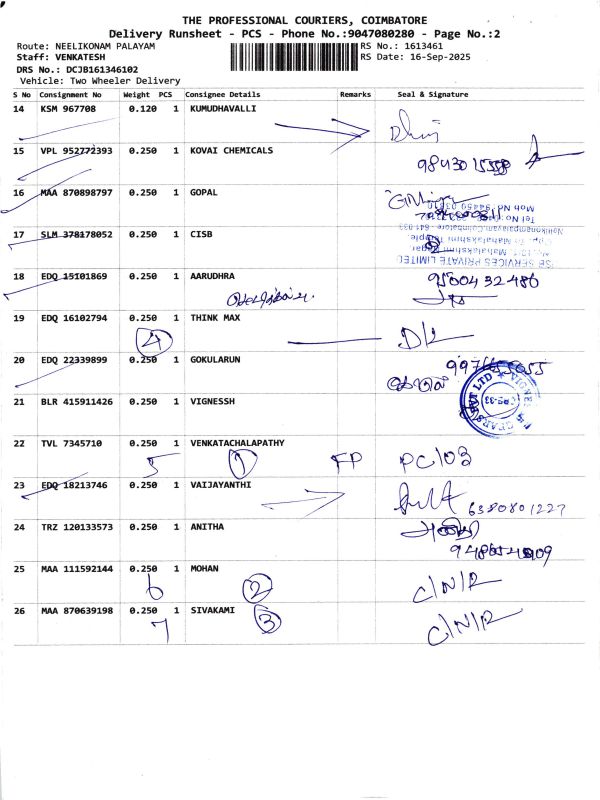 THE PROFESSIONAL COURIERS, COIMBATORE
Delivery Runsheet - PCS - Phone No.:9047080280 - Page No.:2
Route: NEELIKONAM PALAYAM RS No.: 1613461
Staff: VENKATESH RS Date: 16-Sep-2025
DRS No.: DCJB161346102
Vehicle: Two Wheeler Delivery
S No Consignment No Weight PCS Consignee Details Remarks Seal & Signature
14 KSM 967708 0.120 1 KUMUDHAVALLI
15 VPL 952772393 0.250 1 KOVAI CHEMICALS
16 MAA 870898797 0.250 1 GOPAL
17 SLM 378178052 0.250 1 CISB
18 EDQ 15101869 0.250 1 AARUDHRA
9500432486
19 EDQ 16102794 0.250 1 THINK MAX
4 D/L
20 EDQ 22339899 0.250 1 GOKULARUN
21 BLR 415911426 0.250 1 VIGNESSH
22 TVL 7345710 0.250 1 VENKATACHALAPATHY
5 1 FP PC/03
23 EDQ 18213746 0.250 1 VAIJAYANTHI
6380801227
24 TRZ 120133573 0.250 1 ANITHA
25 MAA 111592144 0.250 1 MOHAN
6 2 C/N/R
26 MAA 870639198 0.250 1 SIVAKAMI
7 3 C/N/R